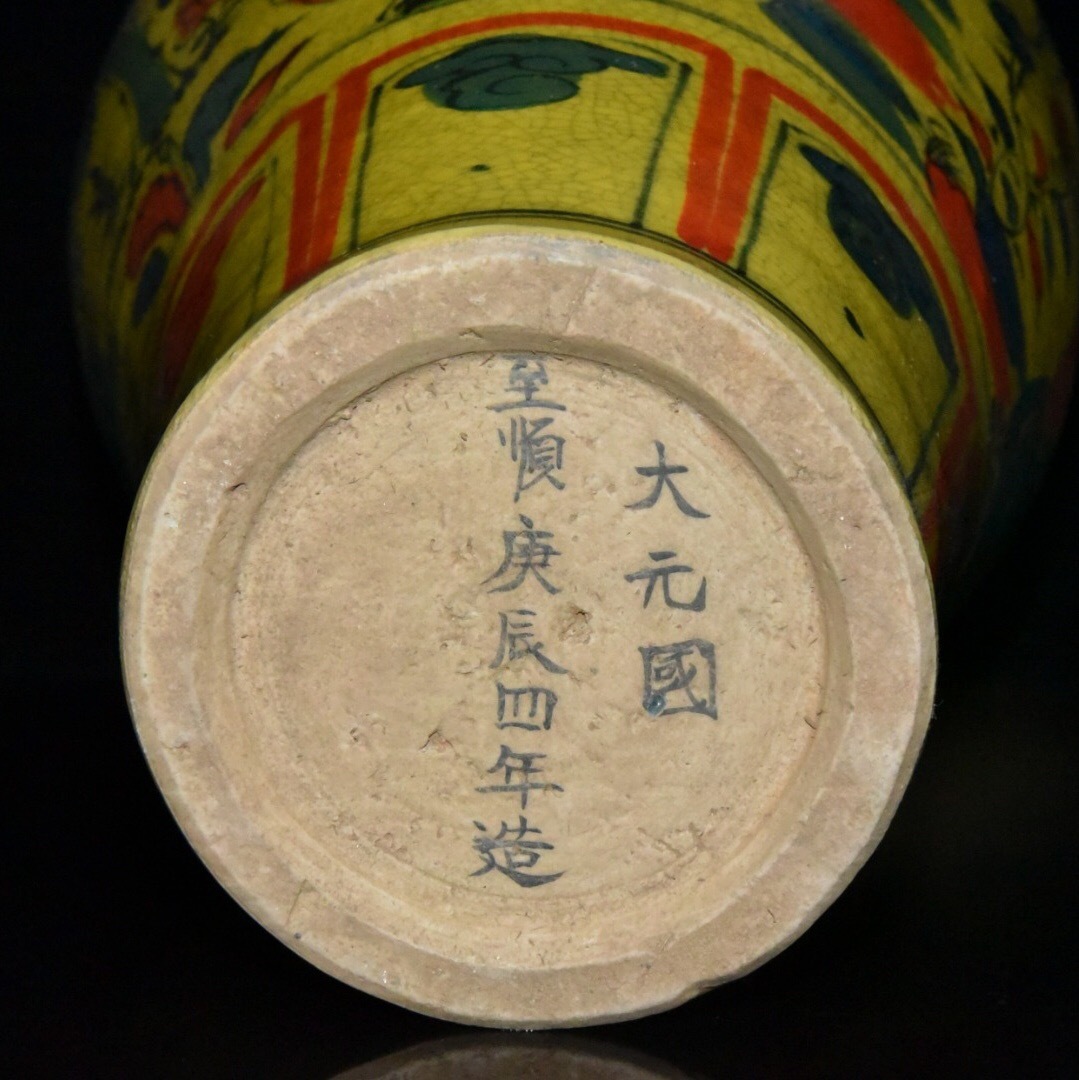 大元國
至順庚辰四年造